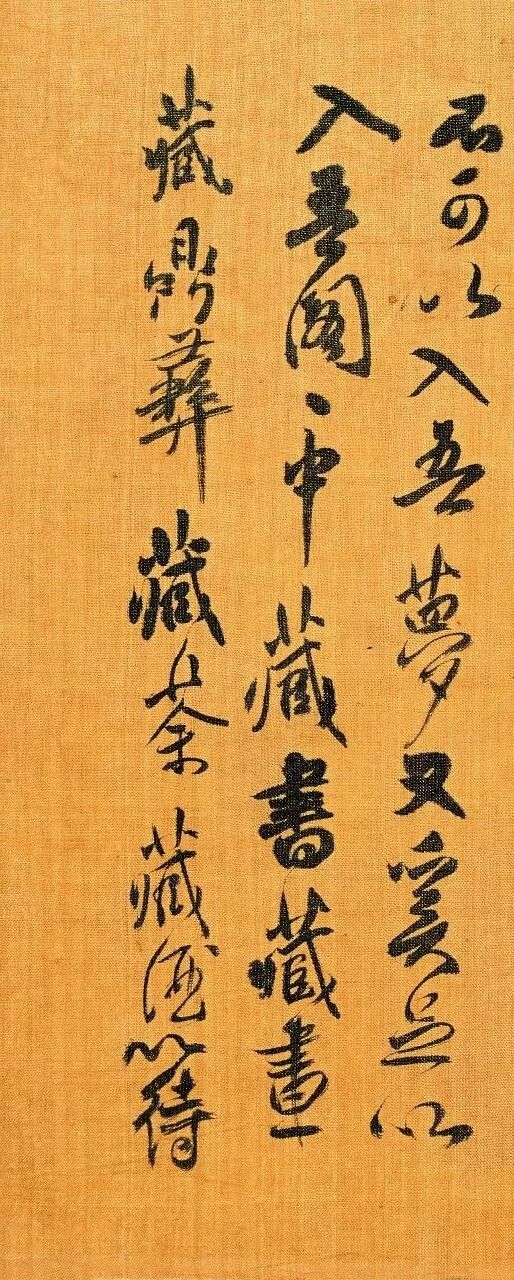 不可以入吾夢又奚足以
入吾閣閣中藏書藏畫
藏鼎彝藏茶藏酒以待